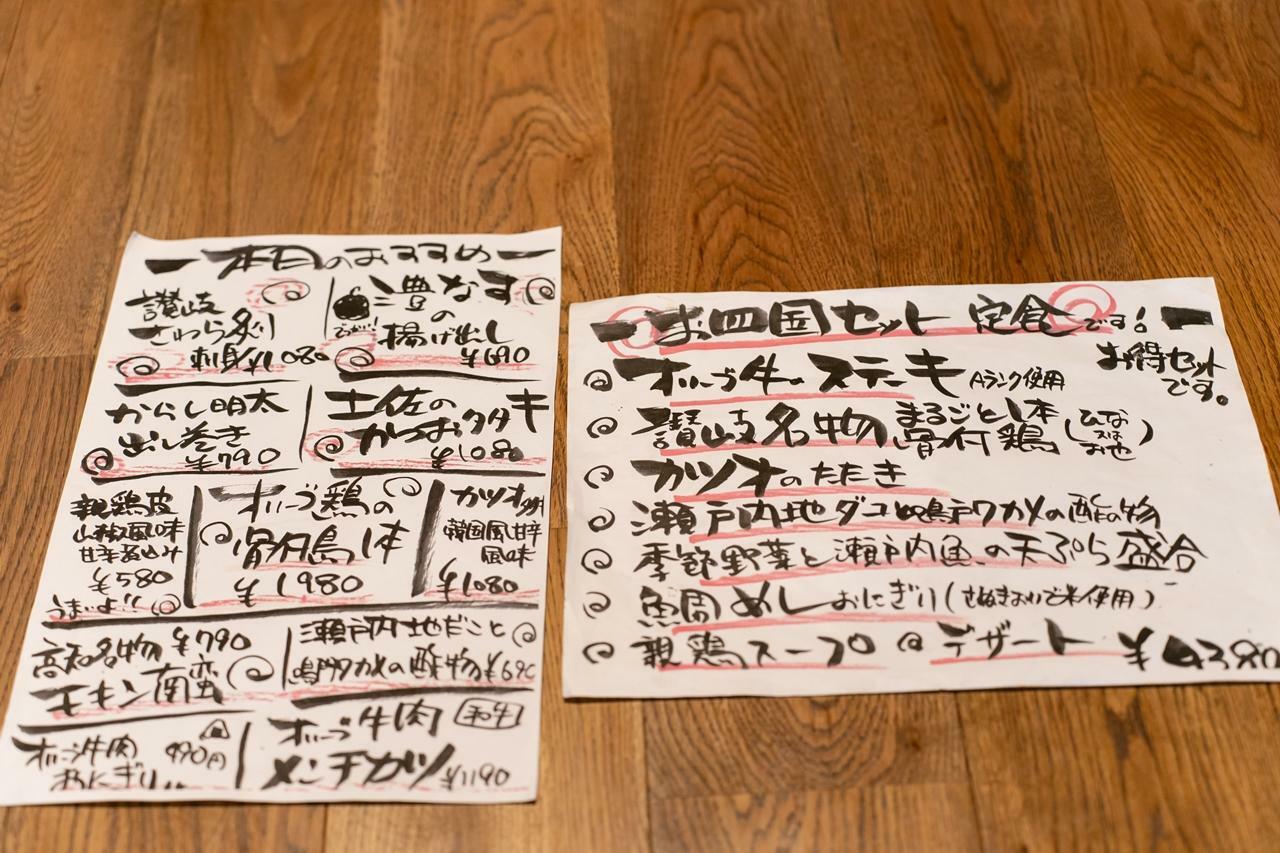 本日のおすすめ
讃岐
さわら炙り
刺身¥1080
豊なす
の
揚げ出し
¥690
からし明太
出し巻き
¥790
土佐の
かつおタタキ
¥1080
親鶏皮
山椒風味
甘辛煮込み
¥580
うまいよ!!
オリーブ鶏の
骨付鳥1本
¥1980
カツオ
韓国風甘辛
風味
¥1080
高知名物 ¥790
チキン南蛮
瀬戸内地だこと
鳴門ワカメの酢物¥690
オリーブ牛肉 490円
おにぎり
オリーブ牛肉 和牛
メンチカツ ¥1190
お四国セット 定食です!
お得セット
です。
オリーブ牛のステーキ Aランク使用
讃岐名物 まるごと1本
骨付鶏 (ひな又はおや)
カツオのたたき
瀬戸内地ダコと鳴戸ワカメの酢の物
季節野菜と瀬戸内魚の天ぷら盛合
魚周めしおにぎり(さぬきおいで米使用)
親鶏スープ @ デザート ¥4380